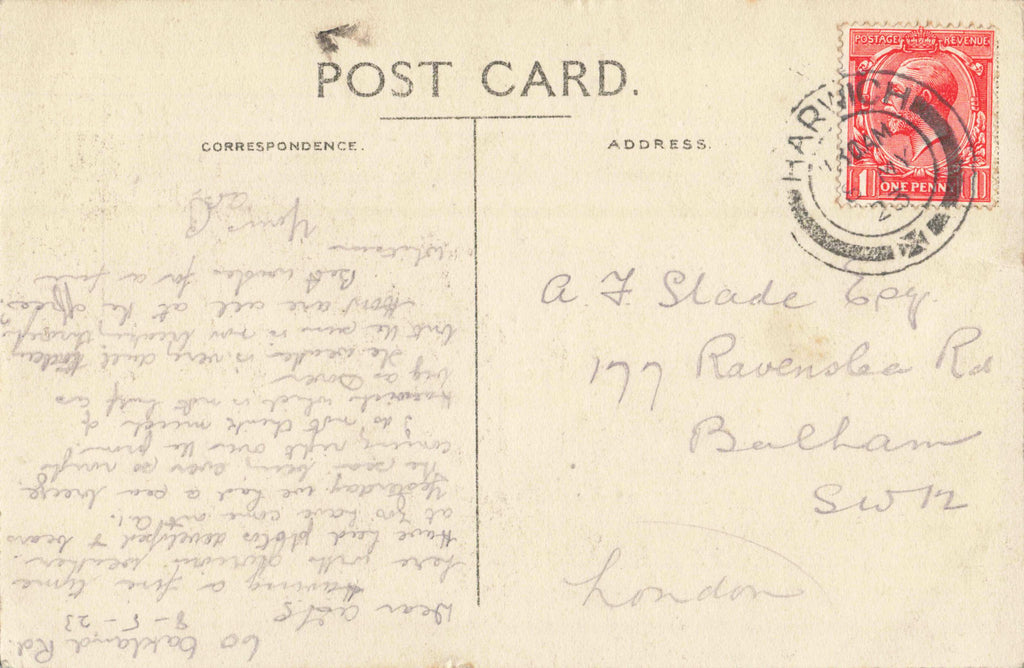 POST CARD.
CORRESPONDENCE.
ADDRESS.
POSTAGE REVENUE
1 ONE PENNY 1
HARWICH
30 AM
MY
23
A. F. Slade Esq.
177 Ravenslea Rd
Balham
SW12
London
60 Oakland Rd.
8-5-23
Dear
Having a fine time
here with glorious weather.
Have had photos developed &
at 200 have come out A1.
Yesterday we had a sea breeze
the sea being ever so rough
coming right over the prom.
I do not think much of
Harwich which is not half as
big as Dover
The weather is very dull today
but the sun is now breaking through
are all at the office.
Best wishes for a fine
Whitsun
Yours